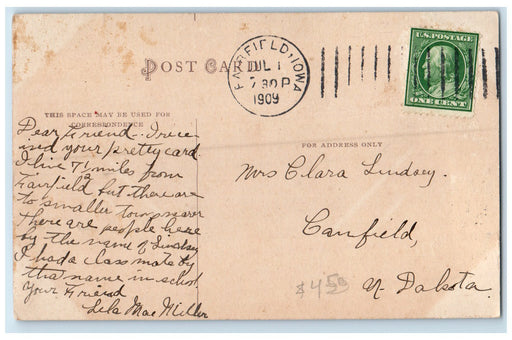 POST CARD
FAIRFIELD, IOWA
JUL 1
7 30 P
1909
U.S. POSTAGE
ONE CENT
THIS SPACE MAY BE USED FOR
CORRESPONDENCE
FOR ADDRESS ONLY
Dear Friend. I rece
ived your pretty card.
I live 7½ miles from
Fairfield but there are
to smaller towns nearer
There are people here
by the name of Lindsey
I had a class mate by
that name in school
Your Friend
Lela Mae Miller
Mrs Clara Lindsey.
Canfield,
N. Dakota.
$4.50